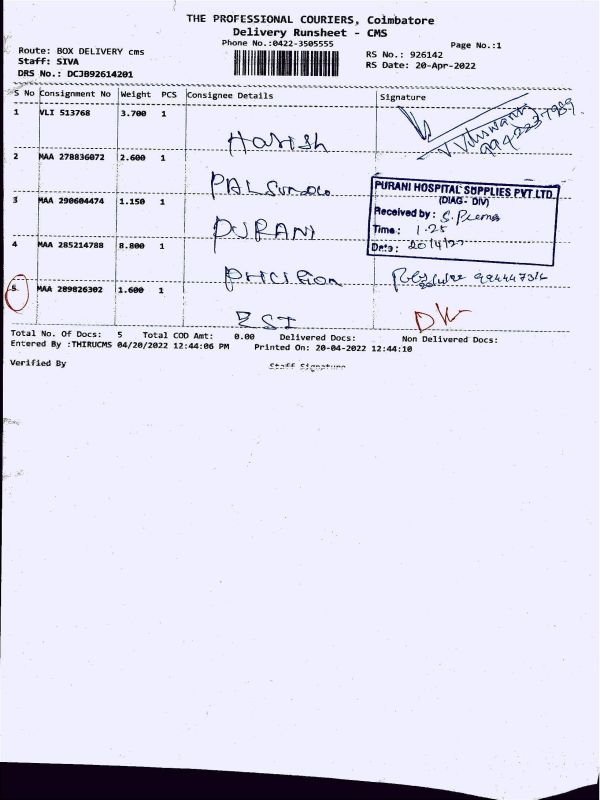 THE PROFESSIONAL COURIERS, Coimbatore
Delivery Runsheet - CMS
Phone No.:0422-3505555
Page No.:1
Route: BOX DELIVERY cms
Staff: SIVA
DRS No.: DCJB92614201
RS No.: 926142
RS Date: 20-Apr-2022
S No Consignment No Weight PCS Consignee Details Signature
1 VLI 513768 3.700 1
Harish
2 MAA 278836072 2.600 1
3 MAA 290604474 1.150 1
PURANI
PURANI HOSPITAL SUPPLIES PVT LTD
(DIAG - DIV)
Received by: S. Prema
Time: 1.25
Date: 20/4/22
4 MAA 285214788 8.800 1
5 MAA 289826302 1.600 1
ESI
Total No. Of Docs: 5 Total COD Amt: 0.00 Delivered Docs: Non Delivered Docs:
Entered By :THIRUCMS 04/20/2022 12:44:06 PM Printed On: 20-04-2022 12:44:10
Verified By
Staff Signature